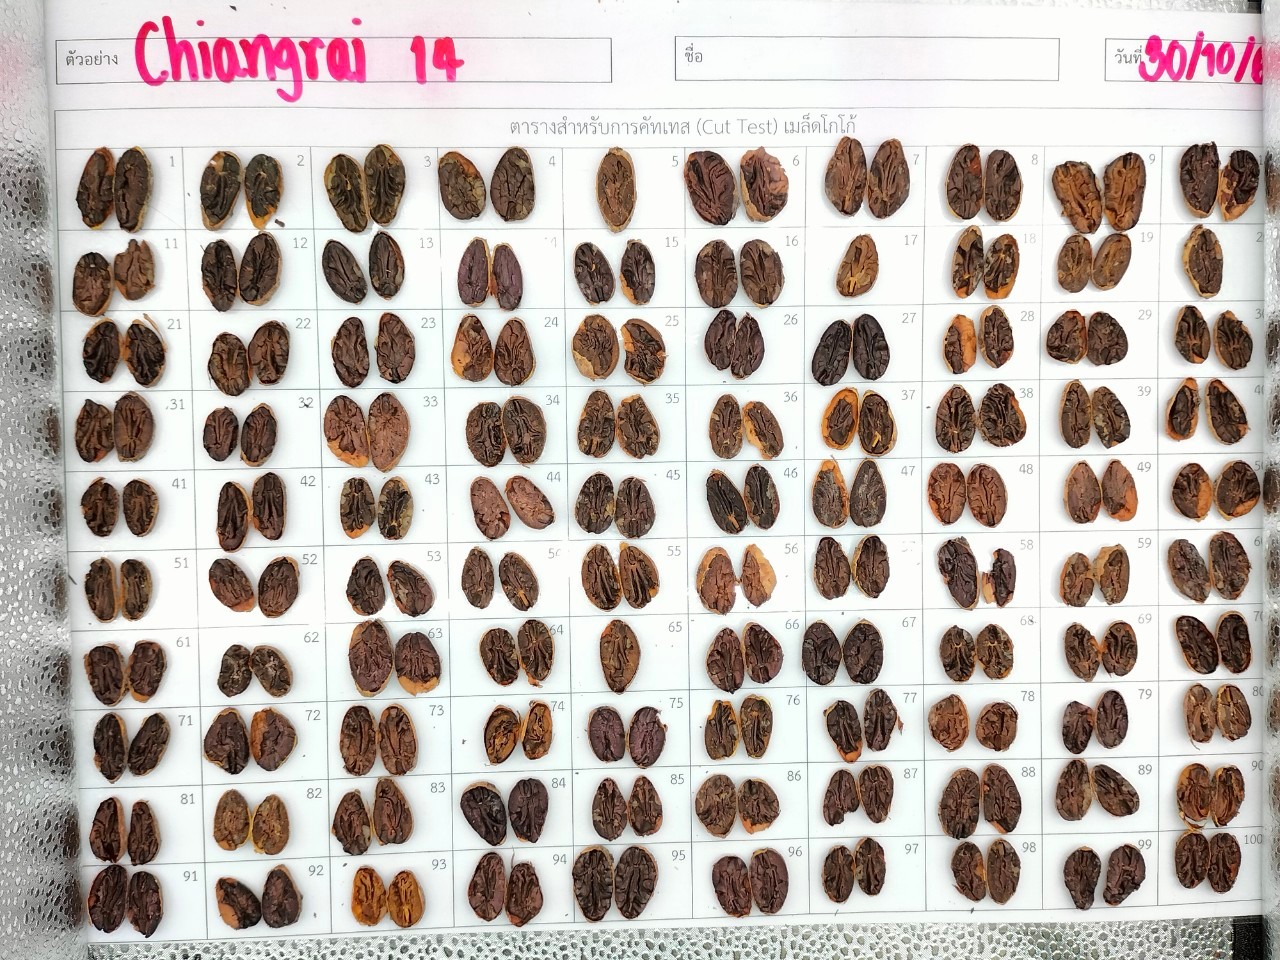 ตัวอย่าง Chiangrai 14 ชื่อ วันที่ 30/10/
ตารางสำหรับการคัทเทส (Cut Test) เมล็ดโกโก้
1 2 3 4 5 6 7 8 9
11 12 13 14 15 16 17 18 19
21 22 23 24 25 26 27 28 29
31 32 33 34 35 36 37 38 39
41 42 43 44 45 46 47 48 49
51 52 53 55 56 57 58 59
61 62 63 64 65 66 67 68 69
71 72 73 74 75 76 77 78 79 80
81 82 83 84 85 86 87 88 89 90
91 92 93 94 95 96 97 98 99 100